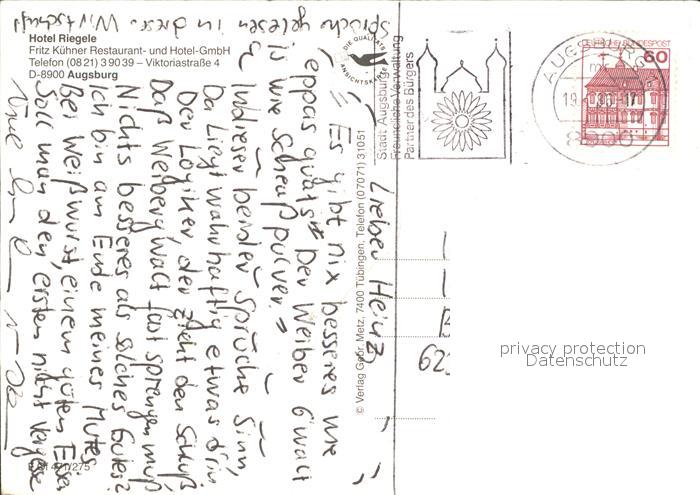 Hotel Riegele
Fritz Kühner Restaurant- und Hotel-GmbH
Telefon (08 21) 3 90 39 – Viktoriastraße 4
D-8900 Augsburg
DIE QUALITÄTS
ANSICHTSKARTE
Stadt Augsburg
Freundliche Verwaltung
Partner des Bürgers
AUGSBURG
8900
DEUTSCHE BUNDESPOST
60
Lieber Heinz,
"Es gibt nix besseres wie
eppas guats" "Der Weiber G'walt
is wie Scheaßpulver."
In dieser beider Sprüche Sinn,
Da liegt wahrhaftig etwas drin
Der Logiker, der zieht den Schluß
Daß Weibergwalt fast sprengen muß
Nichts besseres als solches Gutes?
Ich bin am Ende meines Mutes
Bei Weißwurst, einem guten Essen
Soll man den ersten nicht vergessen
Sprüche gelesen in dieser Wirtschaft
© Verlag Gebr. Metz, 7400 Tübingen, Telefon (07071) 31051
62
privacy protection
Datenschutz